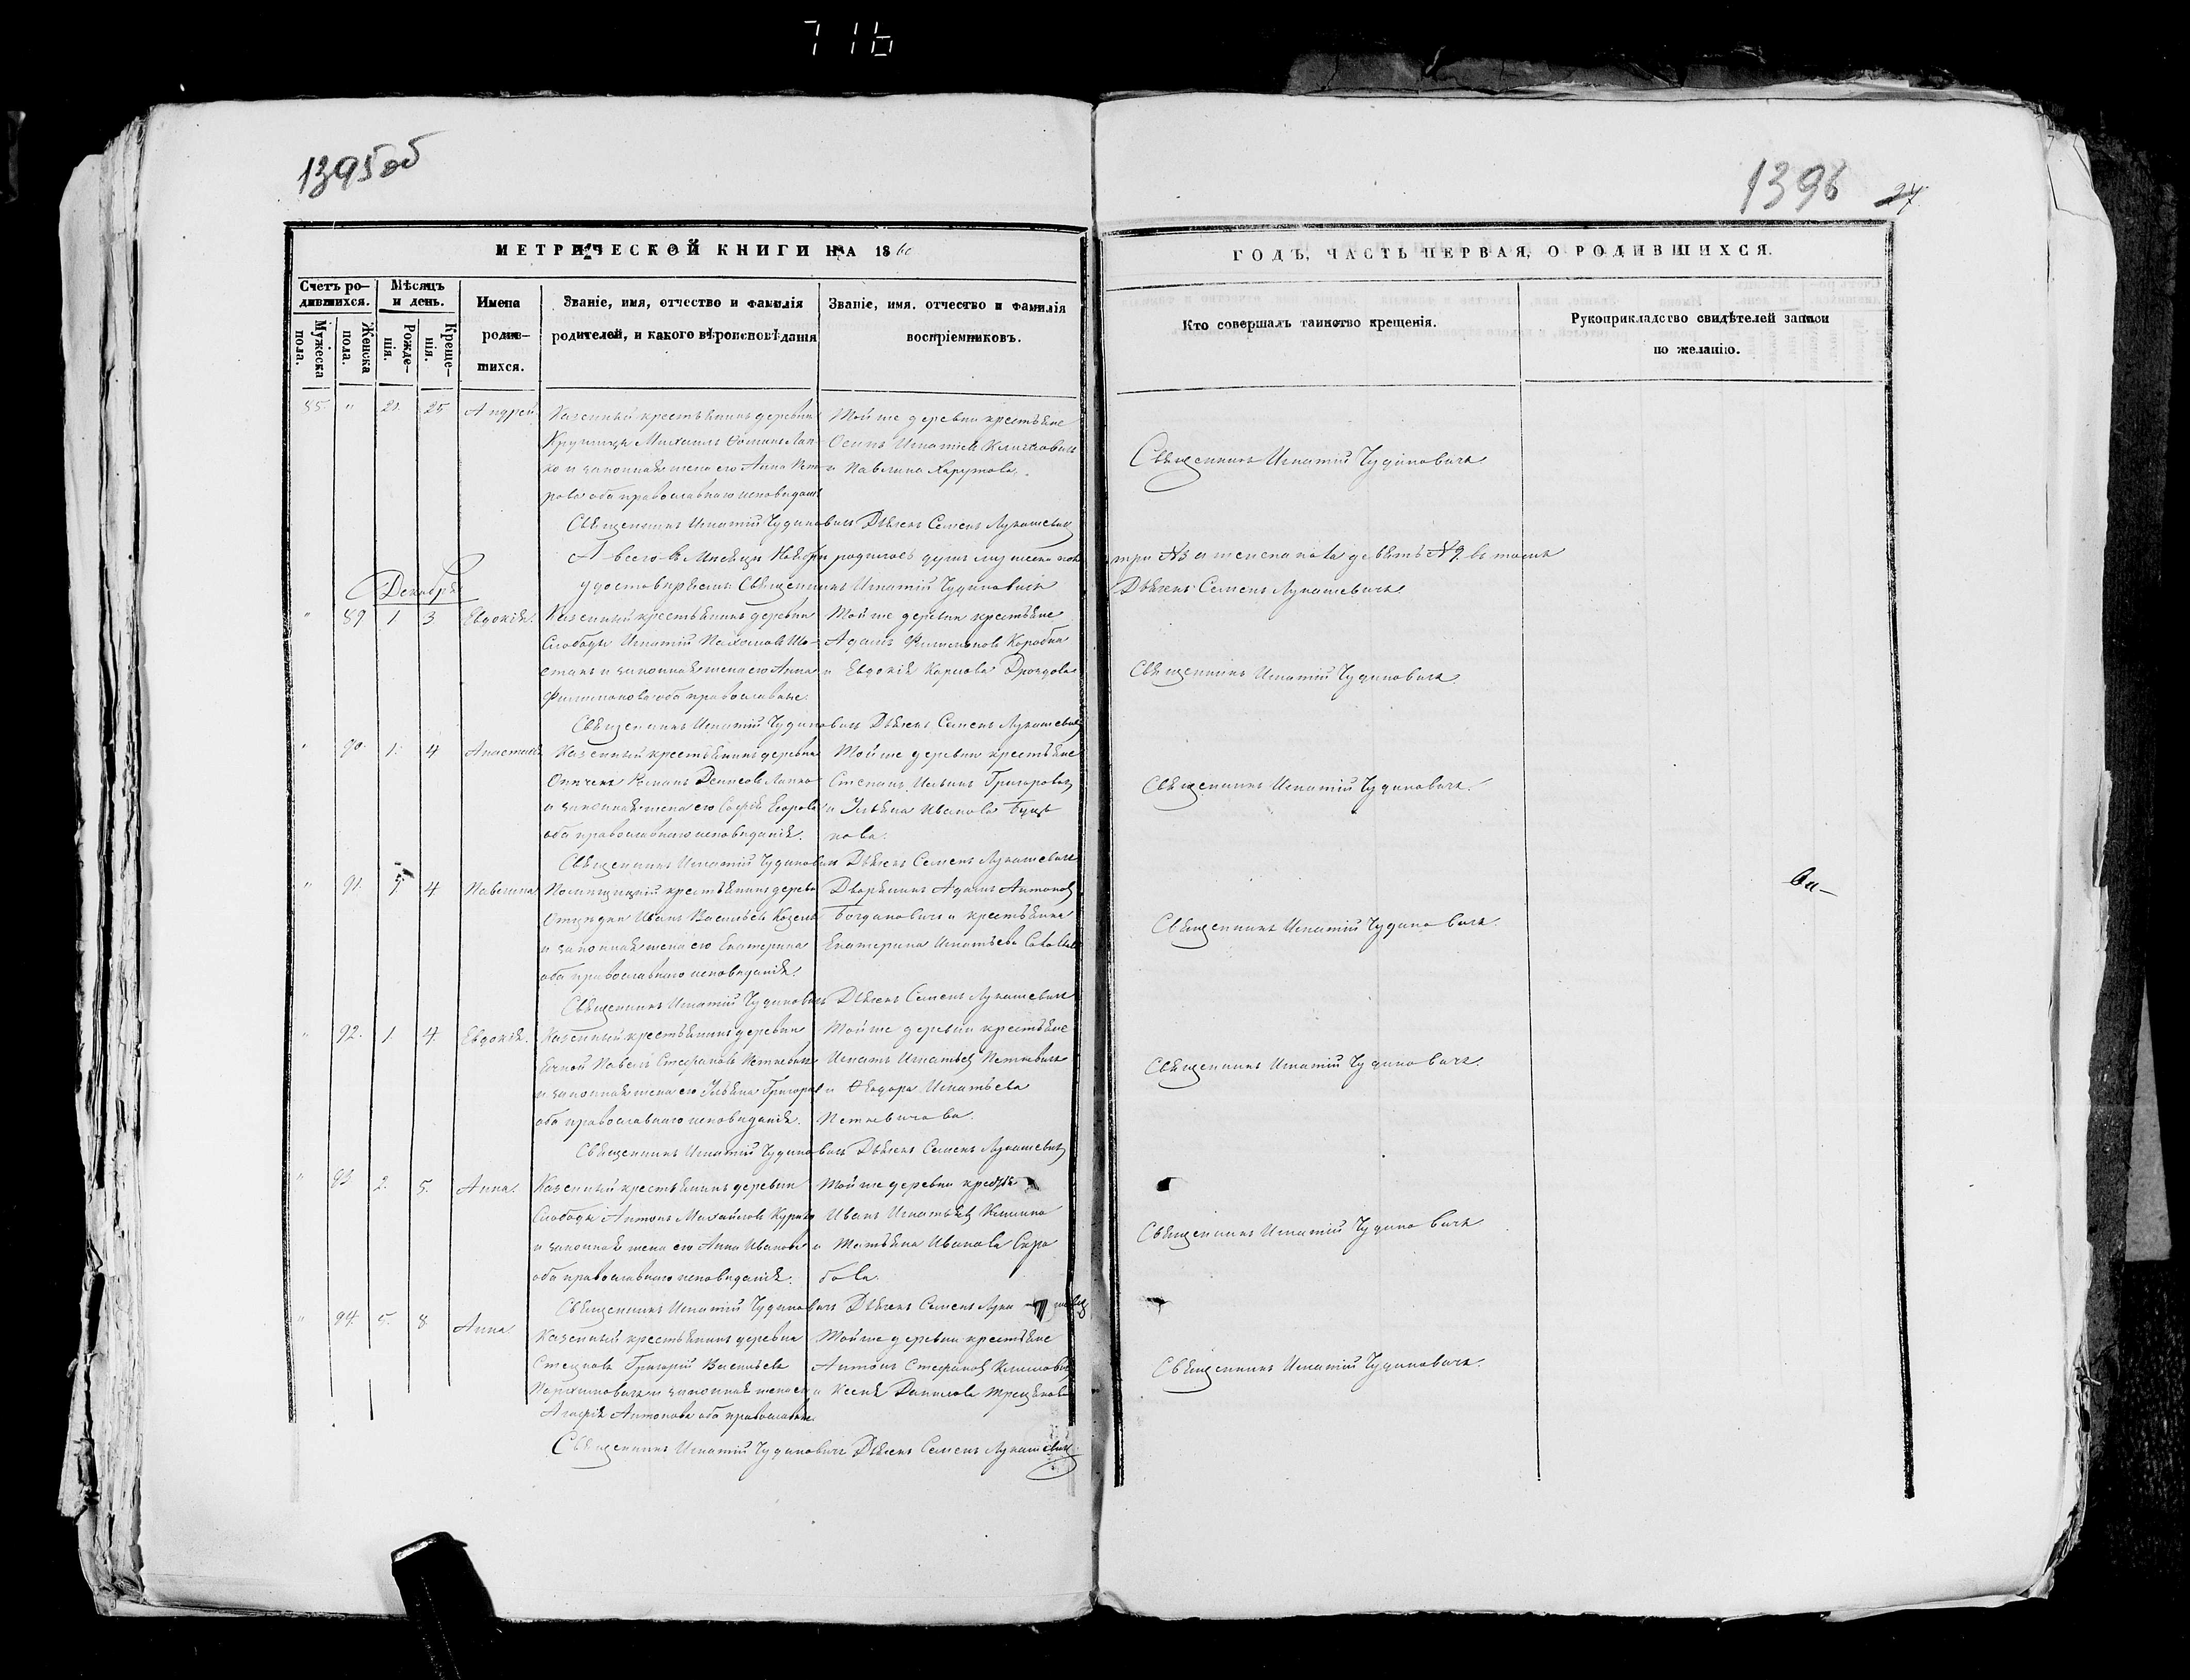 716
1395об
1396 27
МЕТРИЧЕСКОЙ КНИГИ НА 1860
ГОДЪ, ЧАСТЬ ПЕРВАЯ, О РОДИВШИХСЯ.
Счетъ ро-
дившихся.
Мужеска
пола.
Женска
пола.
Мѣсяцъ
и день.
Рожде-
нія.
Креще-
нія.
Имена
родив-
шихся.
Званіе, имя, отчество и фамилія
родителей, и какого вѣроисповѣданія
Званіе, имя, отчество и фамилія
воспріемниковъ.
Кто совершалъ таинство крещенія.
Рукоприкладство свидѣтелей записи
по желанію.
55 " 21. 25 Андрей
Казенный крестьянинъ деревни
Михаилъ Фоминъ Лап-
ко и законная жена его Анна Пет
рова оба православнаго исповѣданія
Той же деревни крестьяне
Осипъ Игнатіевъ
и Павлина
Священникъ Игнатій Чудиновичъ
Священникъ Игнатій Чудиновичъ Дьячекъ Семенъ Лукашевичъ
А всего въ Мѣсяцѣ Ноябрѣ родилось душъ мужеска пола три №3 и женска пола девять №9. въ томъ
удостовѣряемъ: Священникъ Игнатій Чудиновичъ Дьячекъ Семенъ Лукашевичъ
Декабрь
" 89 1 3 Евдокія.
Казенный крестьянинъ деревни
Слободы Игнатій Пахомовъ Шо-
станъ и законная жена его Анна
Филимонова оба православные.
Той же деревни крестьяне
Адамъ Филимоновъ
и Евдокія Карпова Дроздова
Священникъ Игнатій Чудиновичъ
Священникъ Игнатій Чудиновичъ Дьячекъ Семенъ Лукашевичъ
" 90. 1. 4 Анастасія
Казенный крестьянинъ деревни
Романъ Денисовъ Лапко
и законная жена его Софія Егорова
оба православнаго исповѣданія.
Той же деревни крестьяне
Степанъ Ильинъ Григоровичъ
и Ульяна Иванова
нова.
Священникъ Игнатій Чудиновичъ.
Священникъ Игнатій Чудиновичъ Дьячекъ Семенъ Лукашевичъ
" 91. 1 4 Павлина
Помѣщицкій крестьянинъ деревни
Отцѣдки Иванъ Васильевъ Козелъ
и законная жена его Екатерина
оба православнаго исповѣданія.
Дворянинъ Адамъ Антоновъ
Богдановичъ и крестьянка
Екатерина Игнатьева
Священникъ Игнатій Чудиновичъ.
Священникъ Игнатій Чудиновичъ Дьячекъ Семенъ Лукашевичъ
" 92. 1. 4. Евдокія.
Казенный крестьянинъ деревни
Павелъ Стефановъ Петкевичъ
и законная жена его Ульяна Григорьева
оба православнаго исповѣданія.
Той же деревни крестьяне
Игнатъ Игнатьевъ Петкевичъ
и Ѳеодора Игнатьева
Петкевичова.
Священникъ Игнатій Чудиновичъ.
Священникъ Игнатій Чудиновичъ Дьячекъ Семенъ Лукашевичъ
" 93 2. 5. Анна.
Казенный крестьянинъ деревни
Слободы Антонъ Михайловъ
и законная жена его Анна Иванова
оба православнаго исповѣданія.
Той же деревни крестьяне
Иванъ Игнатьевъ
и Татьяна Иванова
бова.
Священникъ Игнатій Чудиновичъ
Священникъ Игнатій Чудиновичъ Дьячекъ Семенъ Лукашевичъ
" 94. 5. 8. Анна.
Казенный крестьянинъ деревни
Григорій Васильевъ
и законная жена его
Агафія Антонова оба православные.
Той же деревни крестьяне
Антонъ Стефановъ
и Ксенія Данилова
Священникъ Игнатій Чудиновичъ.
Священникъ Игнатій Чудиновичъ Дьячекъ Семенъ Лукашевичъ